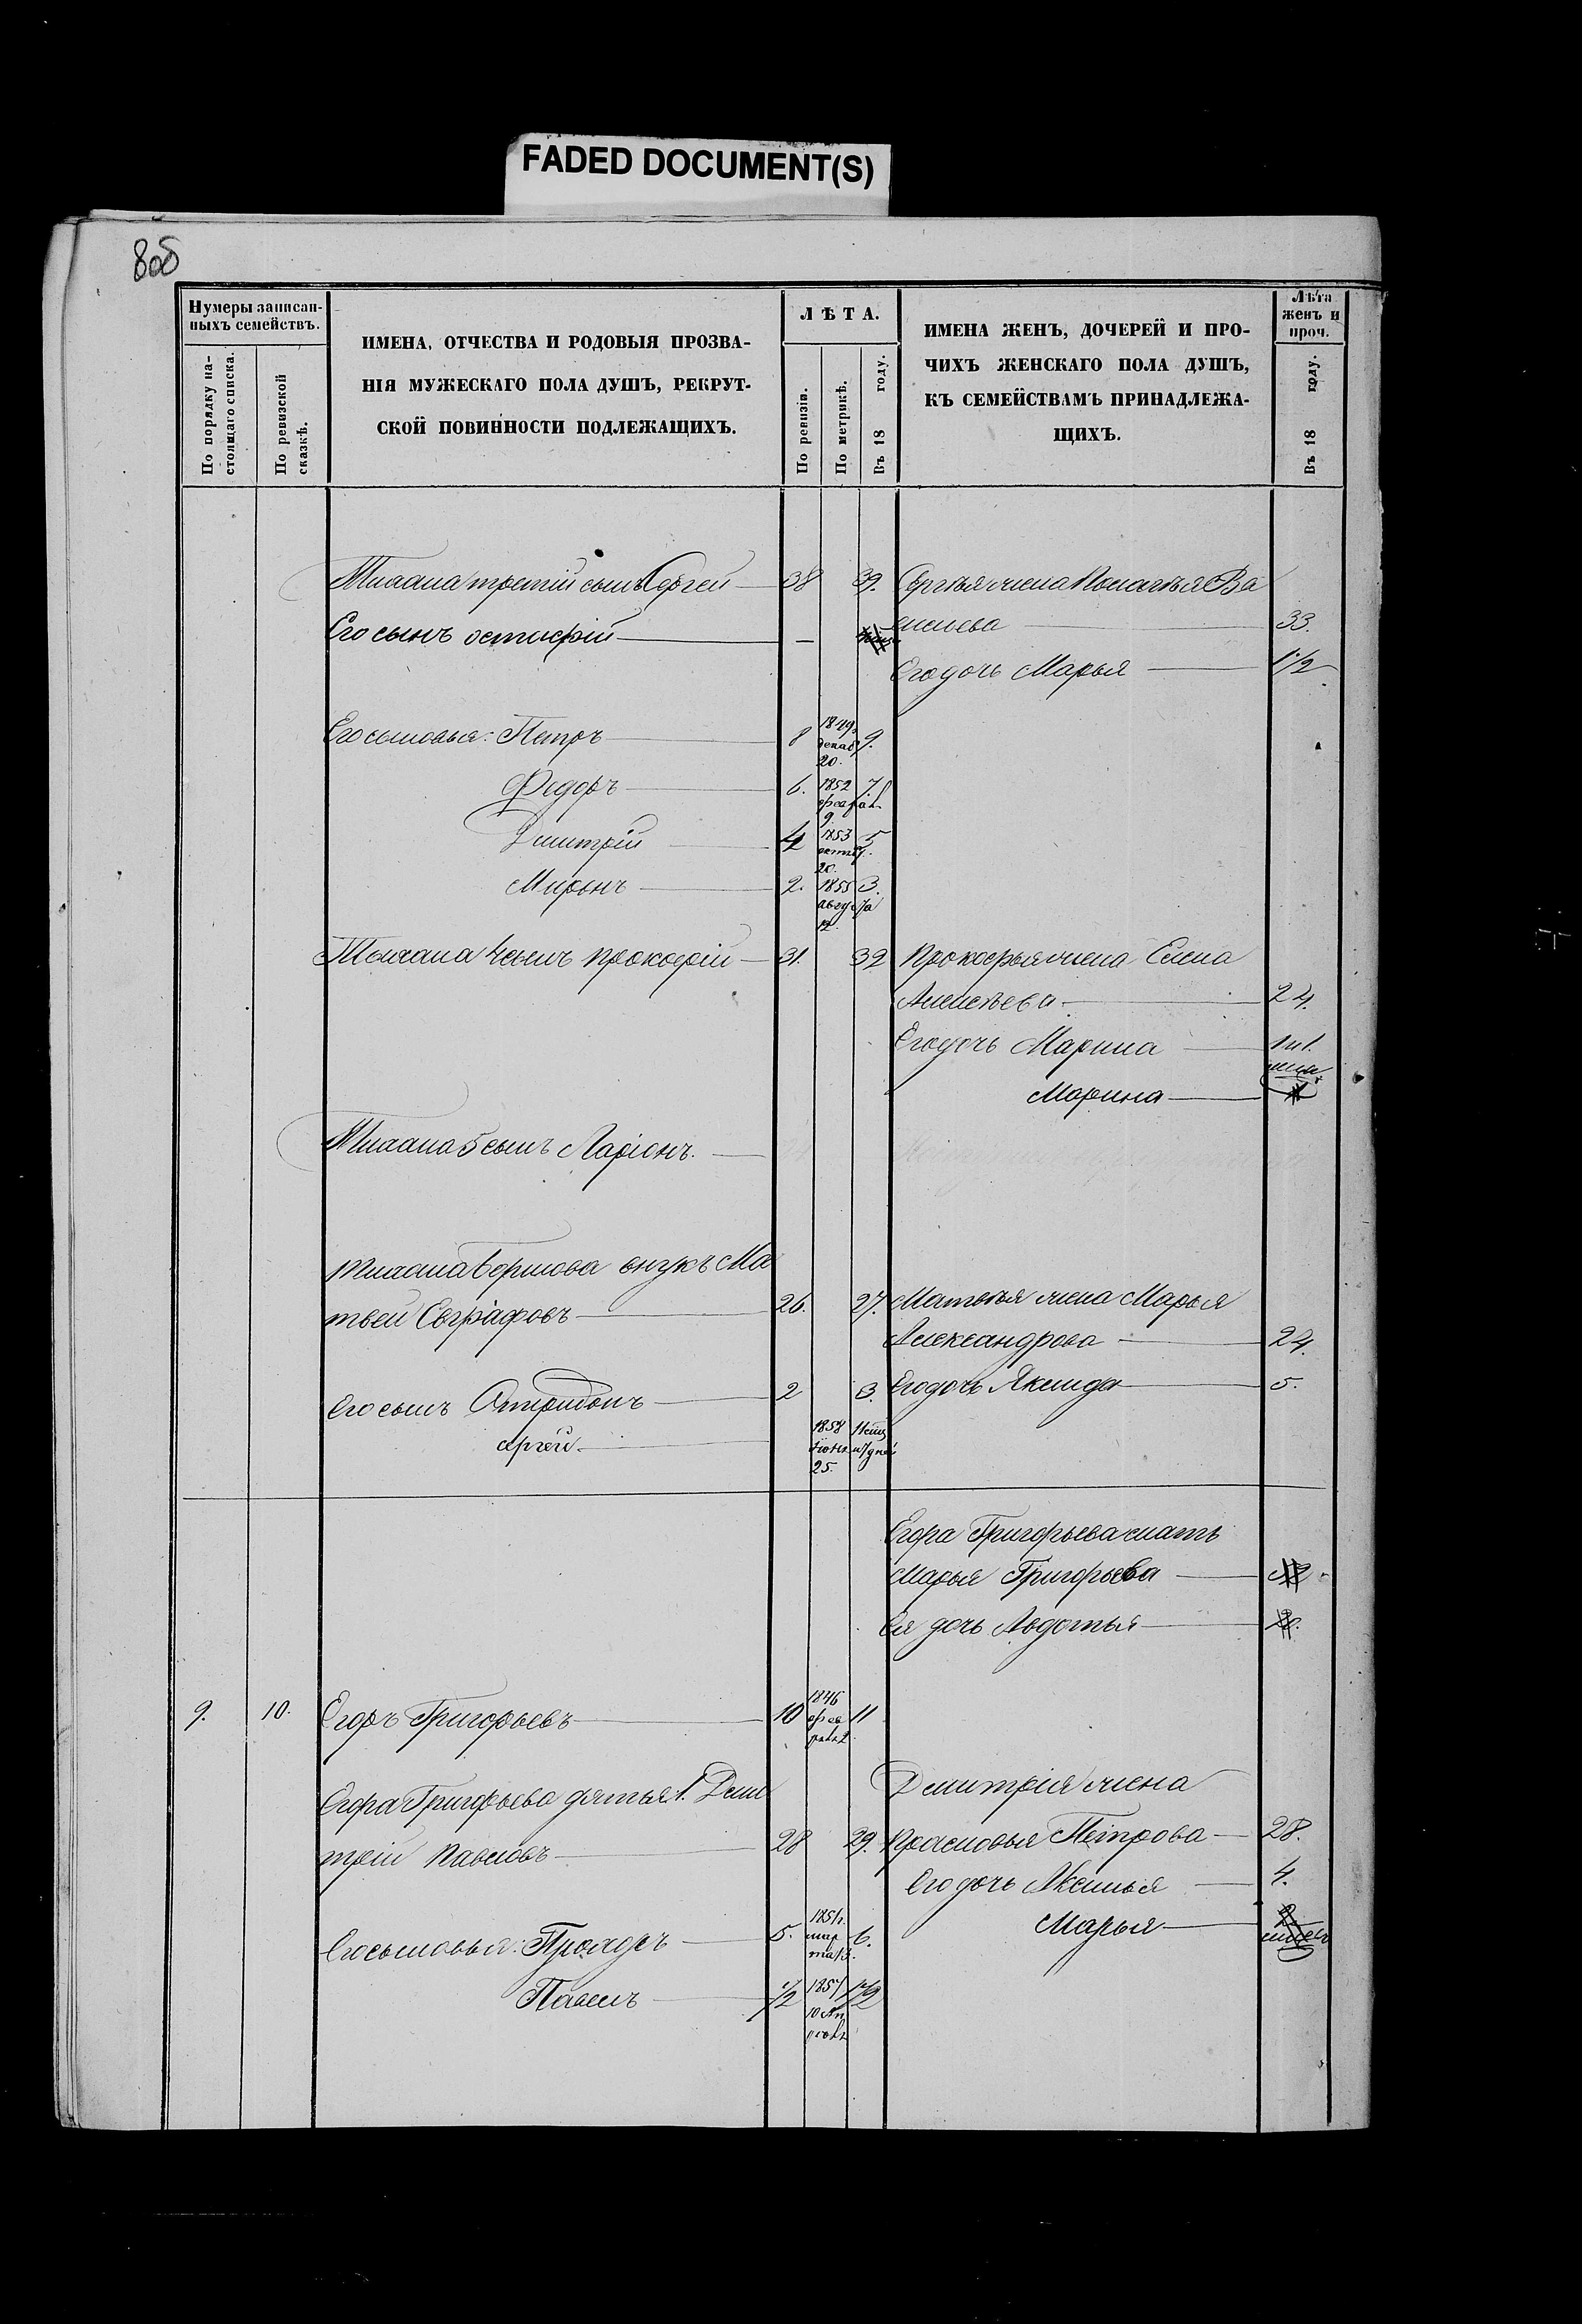 FADED DOCUMENT(S)
80б
Нумеры записан-
ныхъ семействъ.
По порядку на-
стоящаго списка.
По ревизской
сказкѣ.
ИМЕНА, ОТЧЕСТВА И РОДОВЫЯ ПРОЗВА-
НІЯ МУЖЕСКАГО ПОЛА ДУШЪ, РЕКРУТ-
СКОЙ ПОВИННОСТИ ПОДЛЕЖАЩИХЪ.
ЛѢТА.
По ревизіи.
По метрикѣ.
Въ 18 году.
ИМЕНА ЖЕНЪ, ДОЧЕРЕЙ И ПРО-
ЧИХЪ ЖЕНСКАГО ПОЛА ДУШЪ,
КЪ СЕМЕЙСТВАМЪ ПРИНАДЛЕЖА-
ЩИХЪ.
Лѣта
женъ и
проч.
Въ 18 году.
третій сынъ Сергей 38 39. Сергѣя жена Пелагѣя Ва
Его сынъ — сильева 33.
Его дочь Марья 1 1/2
Его сыновья: Петръ 8 1849 декаб 20. 9.
Федоръ 6. 1852 февраля 9. 7.
Дмитрій 4 1853 октяб. 20. 5
Миронъ 2. 1855 августа 12. 3.
4 сынъ Прокофій 31. 32 Прокофья жена Елена
Алексѣева 24.
Его дочь Марина
Марина
5 сынъ Ларіонъ.
внукъ Ма
твей Евграфовъ 26. 27. Матвѣя жена Марья
Александрова 24.
Его сынъ Спиридонъ 2 3. Его дочь 5.
Сергей. 1858 Іюня 25.
Егора Григорьева мать
Марья Григорьева
Ея дочь Авдотья
9. 10. Егоръ Григорьевъ 10 1846 февраля 2. 11
Егора Григорьева дятья 1. Дми Дмитрія жена
трій Павловъ 28 29. Прасковья Петрова 28.
Его дочь Аксинья 4.
Его сыновья: 5. 1851 г. марта 13. 6. Марья
Павелъ 1/2 1857 10 Апреля 1 1/2